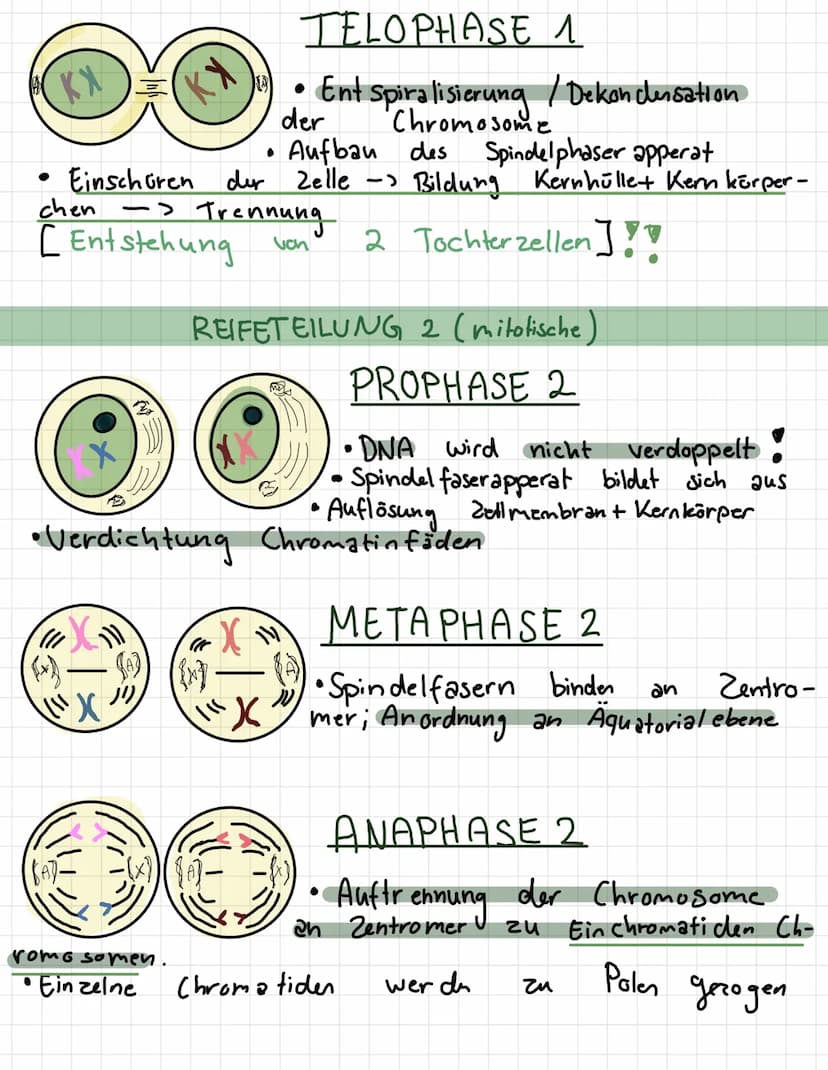 TELOPHASE 1
• Entspiralisierung / Dekondensation
der Chromosome
• Aufbau des Spindelphaser apperat
• Einschüren der Zelle -> Bildung Kernhülle+ Kernkörper-
chen -> Trennung
[Entstehung von 2 Tochterzellen]!!
REIFETEILUNG 2 (mitotische)
PROPHASE 2
• DNA wird nicht verdoppelt !
• Spindelfaserapperat bildet sich aus
• Auflösung Zellmembran + Kernkörper
• Verdichtung Chromatinfäden
METAPHASE 2
• Spindelfasern binden an Zentro-
mer; Anordnung an Äquatorialebene
ANAPHASE 2
• Auftrehnung der Chromosome
an Zentromer zu Einchromatiden Ch-
romosomen.
• Einzelne Chromatiden werdn zu Polen gezogen